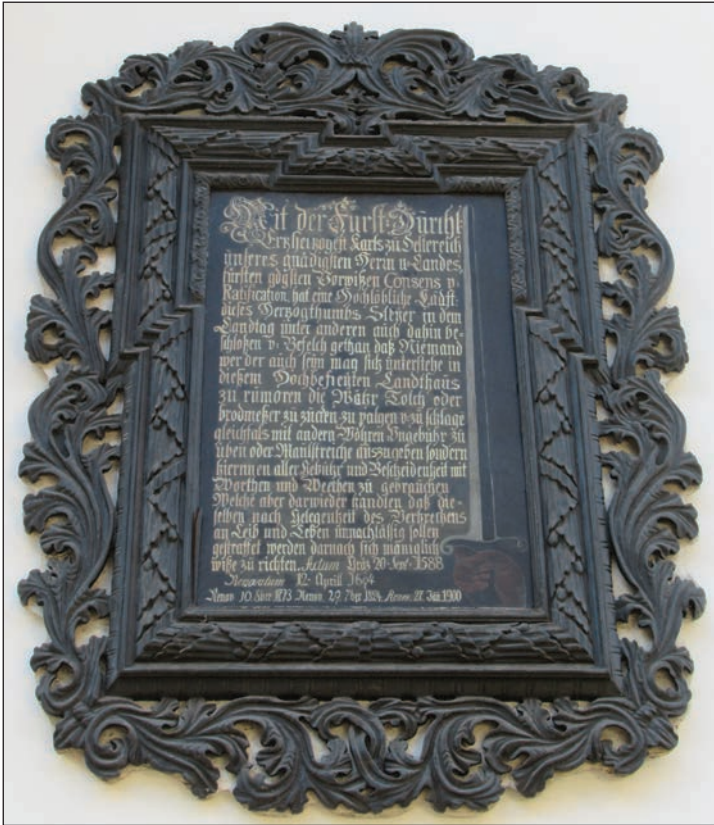 Mit der Fürst: Dürchl:
Ertzhertzogen Karls zu Oesterreich
ünseres gnädigsten Herrn u: Landes,
fürsten gdgsten Vorwißen Consens v:
Ratification, hat eine Hochlöbliche Laaft
dieses Hertzogthumbs Steÿer in dem
Landtag ünter anderen aüch dahin be-
schloßen v: Befelch gethan daß Niemand
wer der auch seÿn mag sich ünterstehe in
dießem Hochbefreüten Landthaüs
zu rümoren die Währ Tolch oder
brodmeßer zü zücken zu palgen v: zü schlagē
gleichfals mit andern Wöhren Vngebühr zü
üben oder Maülstreiche auszugeben sondern
hierinnen aller Gebühr und Bescheidenheit mit
Worthen ünd Wercken zü gebraüchen
Welche aber darwieder handlen daß die-
selben nach Gelegenheit des Verbrechens
an Leib und Leben ünnachläßig sollen
gestraffet werden darnach sich mäniglich
wiße zu richten. Actum Grätz 20. Sept: 1588
Renovatum 12. Aprill 1694
Renov. 10. 8ber 1873 Renov. 29. 7ber 1884 Renov. 21. Jän. 1900